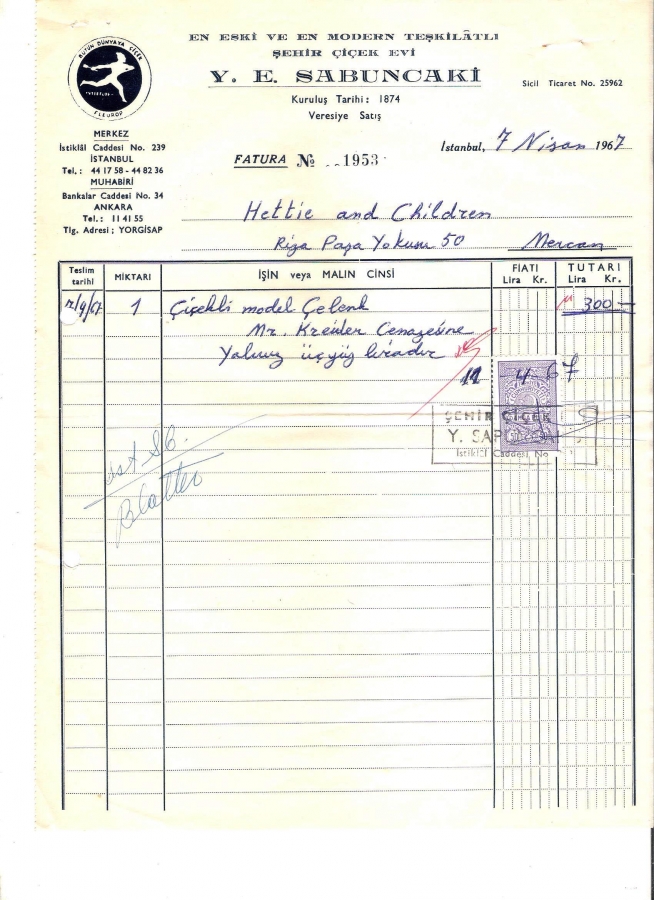 EN ESKİ VE EN MODERN TEŞKİLÂTLI
ŞEHİR ÇİÇEK EVİ
Y. E. SABUNCAKİ
Kuruluş Tarihi: 1874
Veresiye Satış
Sicil Ticaret No. 25962
BÜTÜN DÜNYAYA ÇİÇEK
"INTERFLORA"
FLEUROP
MERKEZ
İstiklâl Caddesi No. 239
İSTANBUL
Tel.: 44 17 58 - 44 82 36
MUHABİRİ
Bankalar Caddesi No. 34
ANKARA
Tel.: 11 41 55
Tlg. Adresi; YORGİSAP
İstanbul, 7 Nisan 1967
FATURA № 1953
Hettie and Children
Riza Paşa Yokuşu 50 Mercan
Teslim tarihi
MİKTARI
İŞİN veya MALIN CİNSİ
FİATI
Lira Kr.
TUTARI
Lira Kr.
7/4/67 1 Çiçekli model Çelenk 300 —
Mr. Kreuler Cenazesine
Yalnız üçyüz liradır
11 4 67
ŞEHİR ÇİÇEK
Y. SAB
İstiklâl Caddesi No
Blatter